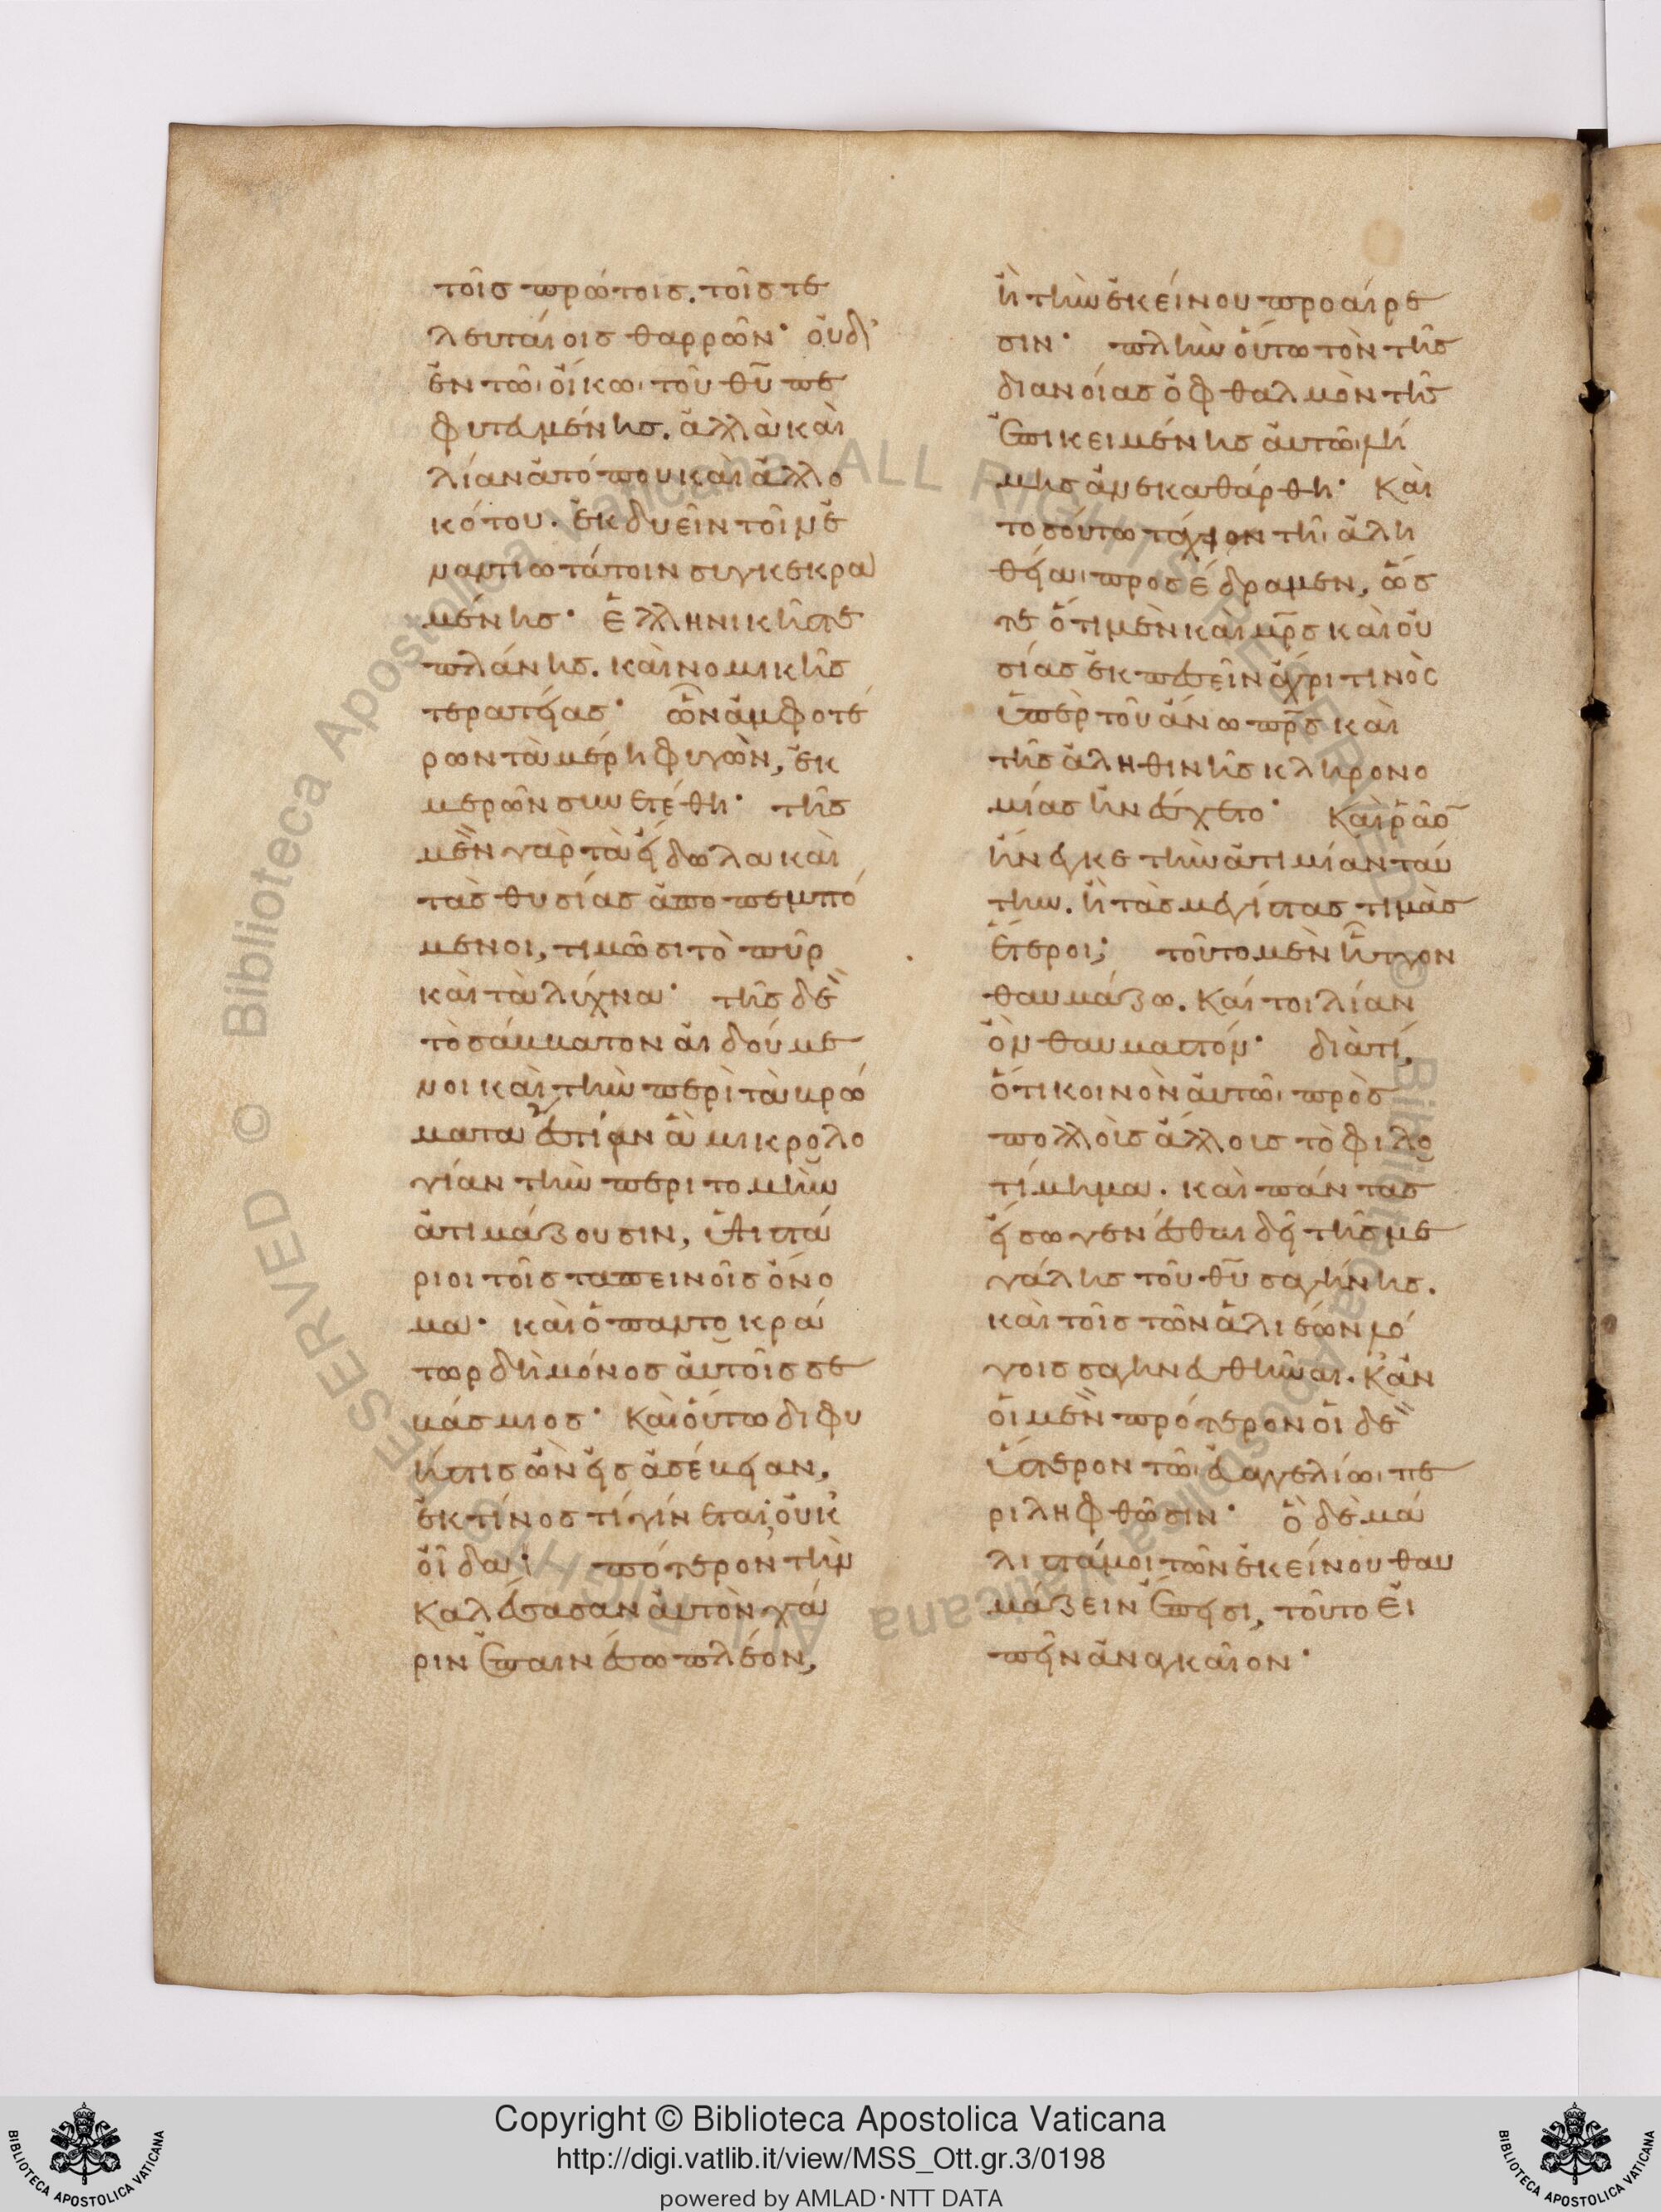 τοῖσ πρώτοισ. τοῖσ τε
λευταίοισ θαρρῶν· οὐδ᾽
ἐν τῶι οἴκωι τοῦ θ͞υ πε
φυτευμένησ. ἀλλὰ καὶ
λίαν ἀτόπου καὶ ἀλλο
κότου. ἐκ δυεῖν τοῖν ἐ
ναντιωτάτοιν συγκεκρα
μένησ· ἑλληνικῆς τε
πλάνησ. καὶ νομικῆσ
τερατείασ· ὧν ἀμφοτέ
ρων τὰ μέρη φυγὼν, ἐκ
μερῶν συνετέθη· τῆσ
μὲν γὰρ τὰ εἴδωλα καὶ
τὰσ θυσίασ ἀποπεμπό
μενοι, τιμῶσι τὸ πῦρ
καὶ τὰ λύχνα· τῆσ δὲ
τὸ σάββατον αἰδούμε
νοι καὶ τὴν περὶ τὰ βρώ
ματα ἐστὶν ἃ μικρολο
γίαν τὴν περιτομὴν
ἀτιμάζουσιν, ὑψιστά
ριοι τοῖσ ταπεινοῖσ ὄνο
μα· καὶ ὁ παντοκρά
τωρ δὴ μόνοσ αὐτοῖσ σε
βάσμιοσ· Καὶ οὕτω διφυ
ήσ τισ ὢν εἰσ ἀσέβειαν,
ἐκ τίνοσ τί γίνεται, οὐκ
οἶδα· πότερον τὴν
Καλέσασαν αὐτὸν χά
ριν ἐπαινέσω πλέον,
ἢ τὴν ἐκείνου προαίρε
σιν· πλὴν οὕτω τὸν τῆσ
διανοίασ ὀφθαλμὸν τῆσ
ἐπικειμένησ αὐτῶι λή
μησ ἀνεκαθάρθη· Καὶ
τοσούτω τάχει τῆι ἀλη
θείαι προσέδραμεν, ὥσ
τε ὅτι μὲν καὶ μ͞ρσ καὶ οὐ
σίασ ἐκπεσεῖν ἄχρι τινὸς
ὑπὲρ τοῦ ἄνω π͞ρσ καὶ
τῆσ ἀληθινῆσ κληρονο
μίασ ἠνέσχετο· Καὶ ῥᾶο͞
ἤνεγκε τὴν ἀτιμίαν ταύ
την. ἢ τὰσ μεγίστασ τιμὰσ
ἕτεροι; τοῦτο μὲν ἧττον
θαυμάζω. Καίτοι λίαν
ὂν θαυμαστόν· διὰ τί,
ὅτι κοινὸν αὐτῶι πρὸσ
πολλοῖσ ἄλλοισ τὸ φιλο
τίμημα. καὶ πάντασ
εἴσω γενέσθαι δεῖ τῆσ με
γάλησ τοῦ θ͞υ σαγήνησ.
καὶ τοῖσ τῶν ἁλιέων λό
γοισ σαγηνευθῆναι. Κἂν
οἱ μὲν πρότερον οἱ δὲ
ὕστερον τῶι εὐαγγελίωι πε
ριληφθῶσιν· ὃ δὲ μά
λιστά μοι τῶν ἐκείνου θαυ
μάζειν ἔπεισι, τοῦτο εἰ
πεῖν ἀναγκαῖον·
Copyright © Biblioteca Apostolica Vaticana
http://digi.vatlib.it/view/MSS_Ott.gr.3/0198
powered by AMLAD·NTT DATA